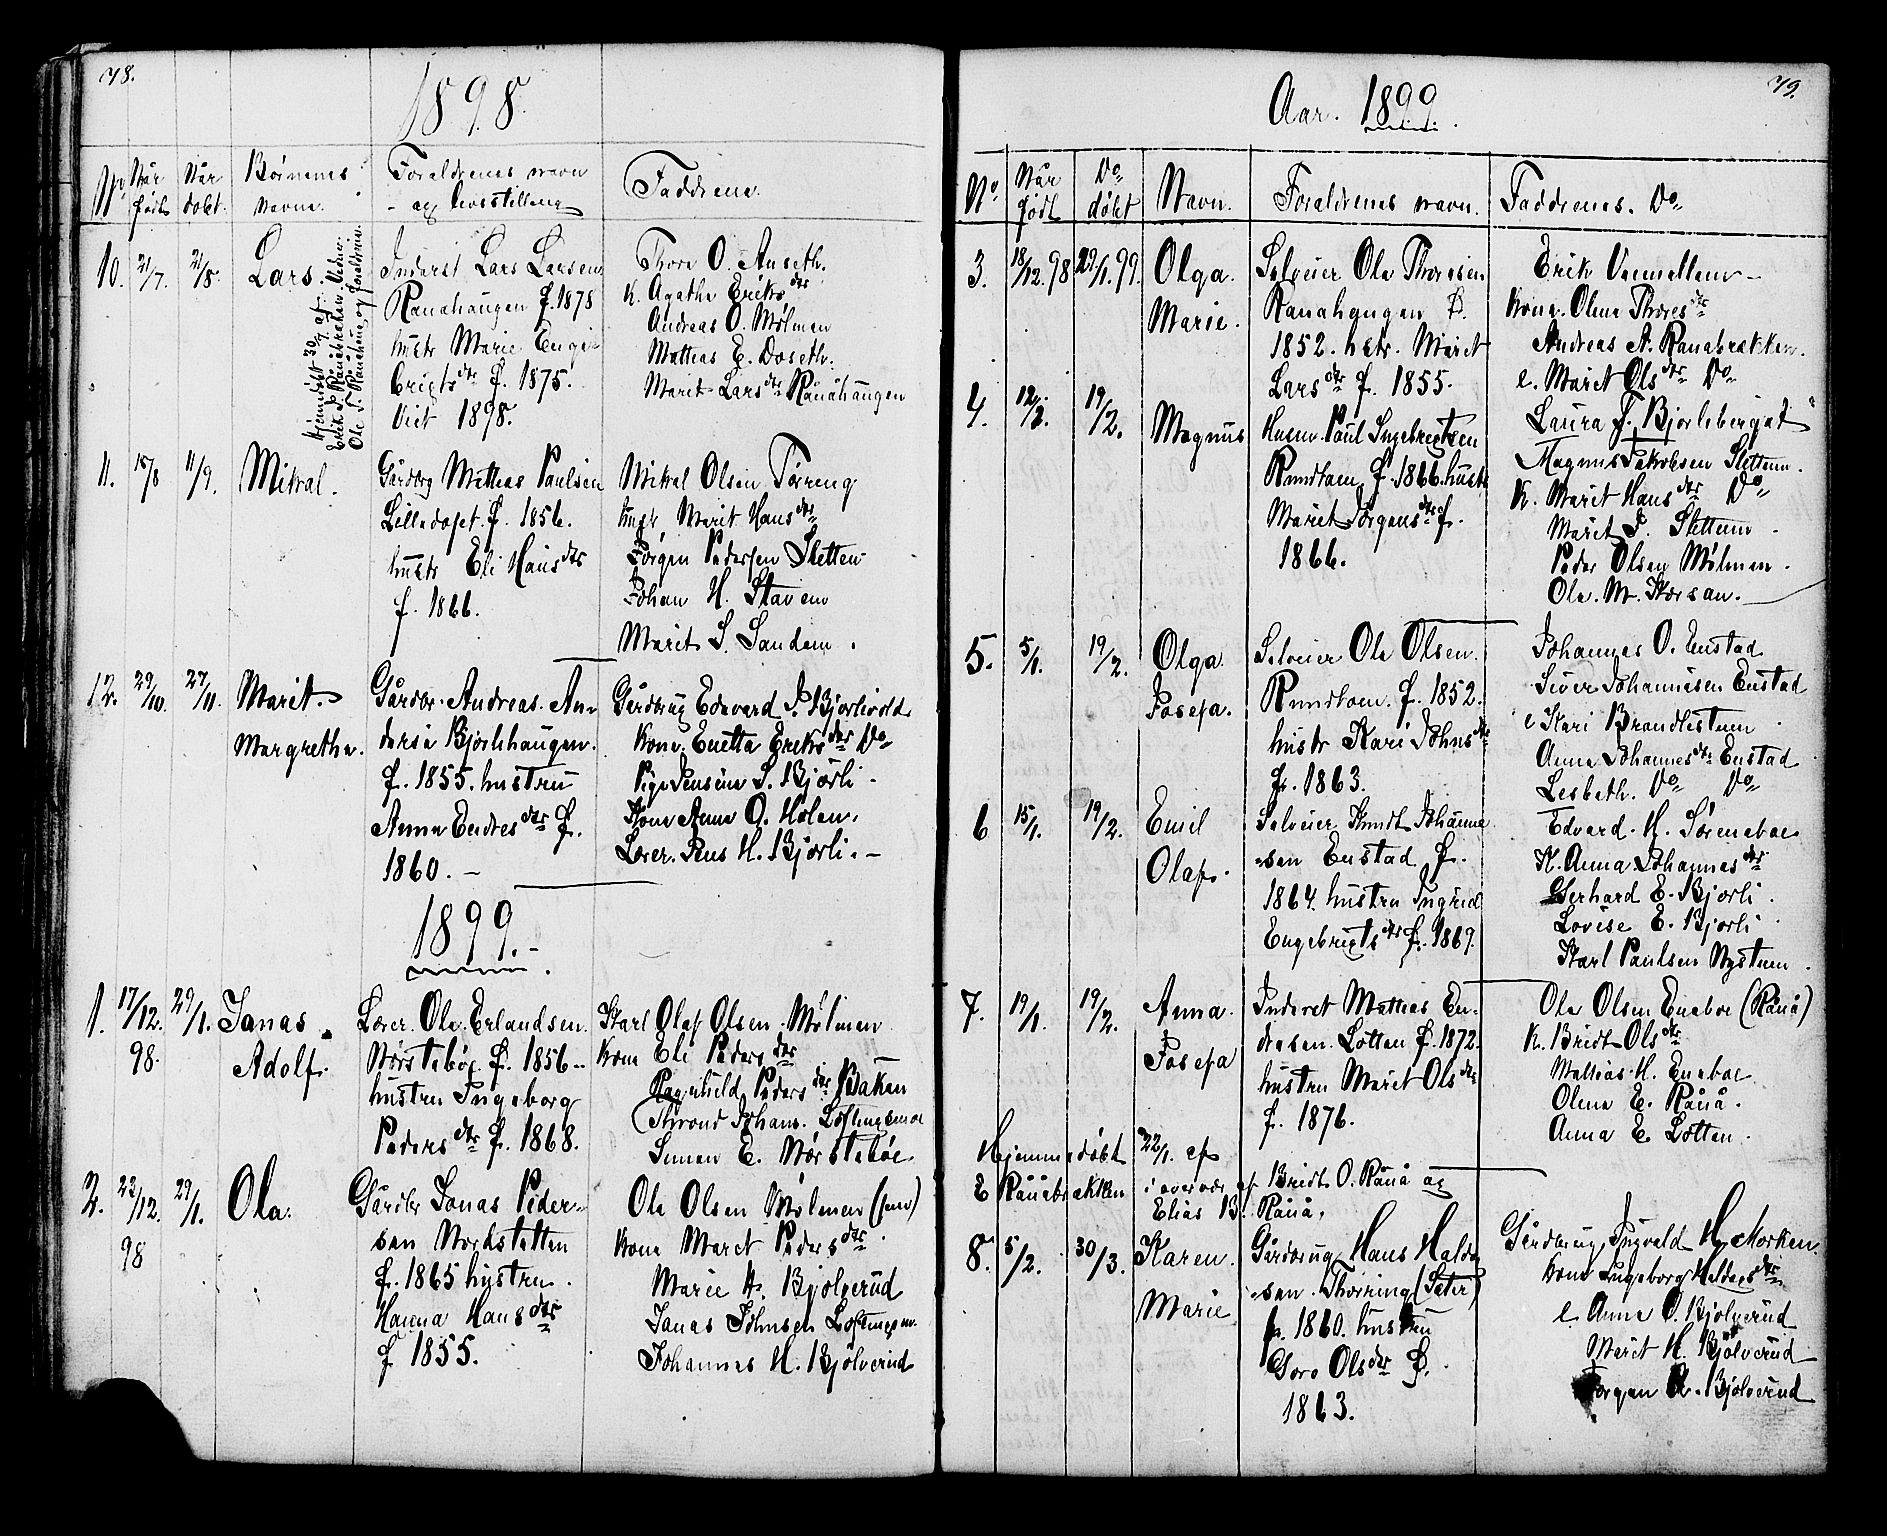 78.
1898.
No
Når født
Når døbt.
Børnenes navne.
Foraldrenes navn og livsstilling
Faddrene.
10. 21/7. 21/8. Lars.
Hjemmedøbt 30/7 af
Erik P. Rånåbrækken Vedm.
Ole T. Rånåhaug og foraldrene.
Inderst Lars Larsen
Rånåhaugen f. 1878
hustr Marie Enge-
brigtsdtr f. 1875.
Viet 1898.
Thore O. Auseth.
K. Agathe Eriksdtr
Andreas O. Mølmen
Mathias E. Doseth.
Marit Larsdtr Rånåhaugen
11. 15/8 11/9. Mikal.
Gårdbrg Mathias Paulsen
Lilledoset. f. 1856.
hustr Eli Hansdtr
f. 1866.
Mikal Olsen Tøreng
hustr Marit Hansdtr
Jørgen Pedersen Sletten
Johan H. Stavem
Marit S. Sandem.
12. 29/10. 27/11. Marit
Margrethe.
Gårdbr. Andreas An-
dersen Bjorlihaugen.
f. 1855. hustru
Anna Endresdtr f.
1860. –
Gårdbrug Edevard J. Bjorlivold
Kone. Enetta Eriksdtr Do
Pige Jensine S. Bjorli –
Kone Anna O. Holen.
Lærer. Jens H. Bjorli. –
1899. –
1. 17/12. 98. 29/1. Janas
Adolf.
Lærer. Ole Erlandsen
Nørstebø. f. 1856 –
hustru Ingeborg
Pedersdtr f. 1868.
Karl Olaf Olsen Mølmen
Kone Eli Pedersdtr
Ragnhild Pedersdtr Bakken
Thrond Johans. Loftingsmo
Simen E. Nørstebøe
2. 23/12. 98 29/1. Ola.
Gårdbr Janas Peder-
sen Nordstetten
f. 1865 hustru
Hanna Hansdtr
f 1855.
Ola Olsen Mølmen (jun)
Kone Maret Pedersdtr
Marie H. Bjølverud
Janas Johnsen Loftingsm.
Johannes H. Bjølverud
79.
Aar. 1899.
No
Når født
Do døbt
Navn.
Foraldrenes navn.
Faddrenes. Do
3. 18/12. 98 29/1. 99. Olga.
Marie.
Selveier Ole Thoresen
Rånåhaugen f.
1852. hstr. Marit
Larsdtr f. 1855.
Erik
Kone. Olina Thoresdtr
Andreas A. Rånåbrækken.
e. Marit Olsdtr Do
Laura J. Bjorlibergat
4. 12/2. 19/2. Magnus
Husm. Paul Ingebrigtsen
Rundtom f. 1866. hustr
Marit Jørgensdtr f.
1866.
Magnus Jakobsen Slettum.
K. Marit Hansdtr Do
Marit J. Slettum
Peder Olsen Mølmen.
Ola. M. Korsan.
5. 5/1. 19/2. Olga
Josefa.
Selveier Ole Olsen.
Rundtom. f. 1852.
hustr Kari Johnsdtr
f. 1863.
Johannes O. Enstad
Siver Johannesen Enstad
e Kari Brandlistuen
Anna Johannesdtr Enstad
Lesbeth. Do Do
6 15/1. 19/2. Emil
Olaf.
Selveier Knudt Johanne
sen Enstad f.
1864. hustru Ingrid
Engebrigtsdtr f. 1869.
Edvard. H. Sørenaboe
K. Anna Johannesdtr
Gerhard E. Bjorli.
Lovise E. Bjorli
Karl Paulsen Nystuen.
7. 19/1. 19/2. Anna
Josefa
Inderst Mathias En-
dresen. Lotten f. 1872.
hustru Marit Olsdtr
f. 1876.
Ole Olsen Eneboe (Rånå)
K. Bridt Olsdtr
Mathias H. Eneboe
Olina E. Rånå.
Anna E. Lotten.
Hjemmedøbt 22/1. af
E Rånåbrækken i overvær af Bridt O. Rånå og
Elias B. Rånå.
8. 5/2. 30/3. Karen.
Marie
Gårdbrug Hans Haldo
sen. Thorring (Seter)
f. 1860. hustru
Goro Olsdtr f.
1863.
Gårdbrug Ingvald H. Morken.
Kone Ingeborg Haldorsdtr
e Anne O. Bjølverud
Marit H. Bjølverud
Jørgen R. Bjølverud